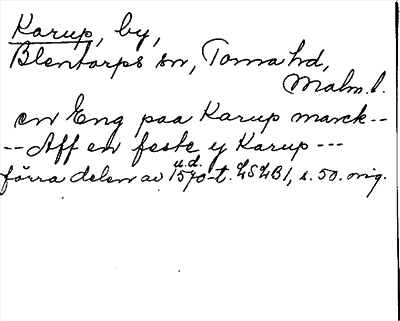 Karup, by,
Blentarps sn, Torna hd,
Malm. l.
en Eng paa Karup marck--
--Aff en feste y Karup---
u.d.
förra delen av 1570-t. LSLB1, s. 50. orig.